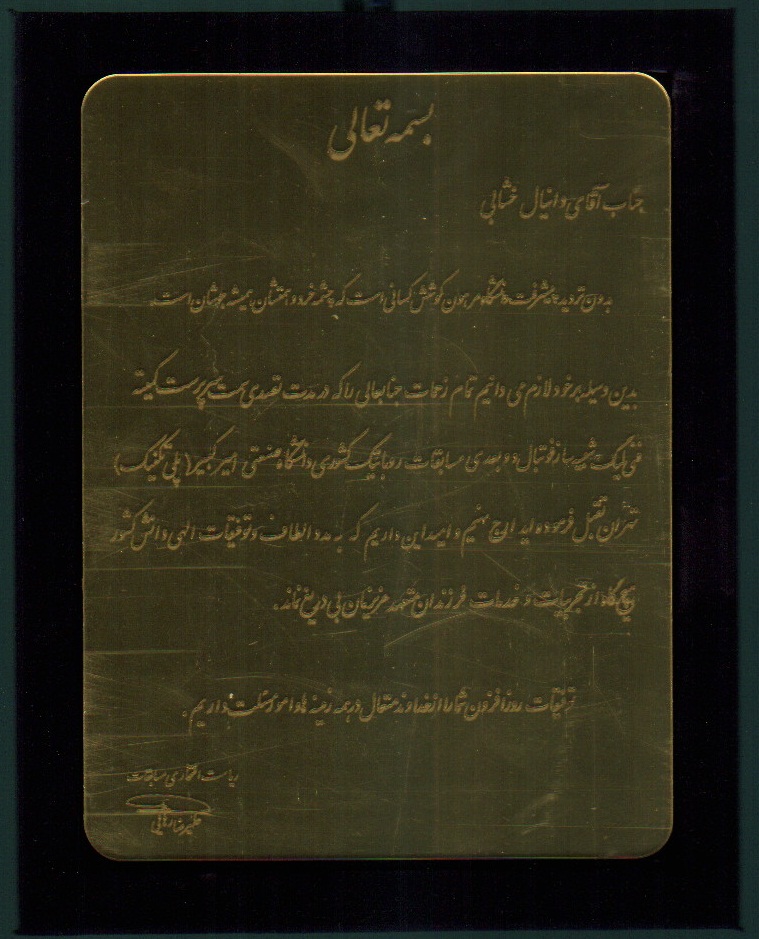 بسمه تعالی
جناب آقای دانیال خشابی
بدون تردید پیشرفت دانشگاه مرهون کوشش کسانی است که چشمه خرد و همتشان همیشه جوشان است.
بدین وسیله بر خود لازم می دانیم تمام زحمات جنابعالی را که در مدت تصدی سمت سرپرست کمیته
فنی لیگ شبیه ساز فوتبال دو بعدی مسابقات روباتیک کشوری دانشگاه صنعتی امیرکبیر (پلی تکنیک)
تهران تقبل فرموده اید ارج نهیم و امید این داریم که به مدد الطاف و توفیقات الهی دانش کشور
هیچگاه از تجربیات و خدمات فرزندان متعهد مرزبانان بی دریغ نماند.
توفیقات روزافزون شما را از خداوند متعال در همه زمینه ها و امور مسئلت داریم.
ریاست افتخاری مسابقات
علیرضا رهایی